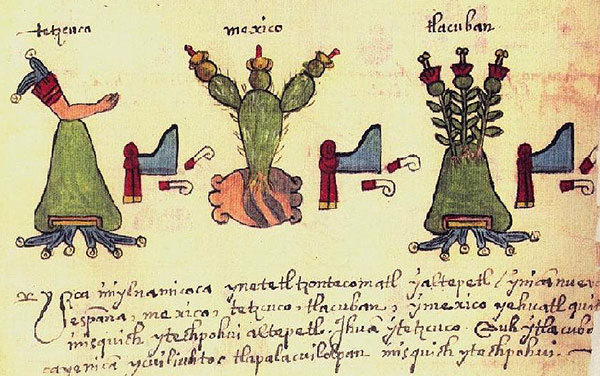 tetzcuco mexico tlacuban
yca ynilnamicoca ynetetltzontecomatl yaltepetl ynican nueva
españa, mexico, tetzcuco, tlacuban, ymexico yehuatl quit
misquich ytechpohui altepetl. Yhuā ytetzcuco. Auh ytlacuba
ytlapalacuilolpan misquich ytechpohui.